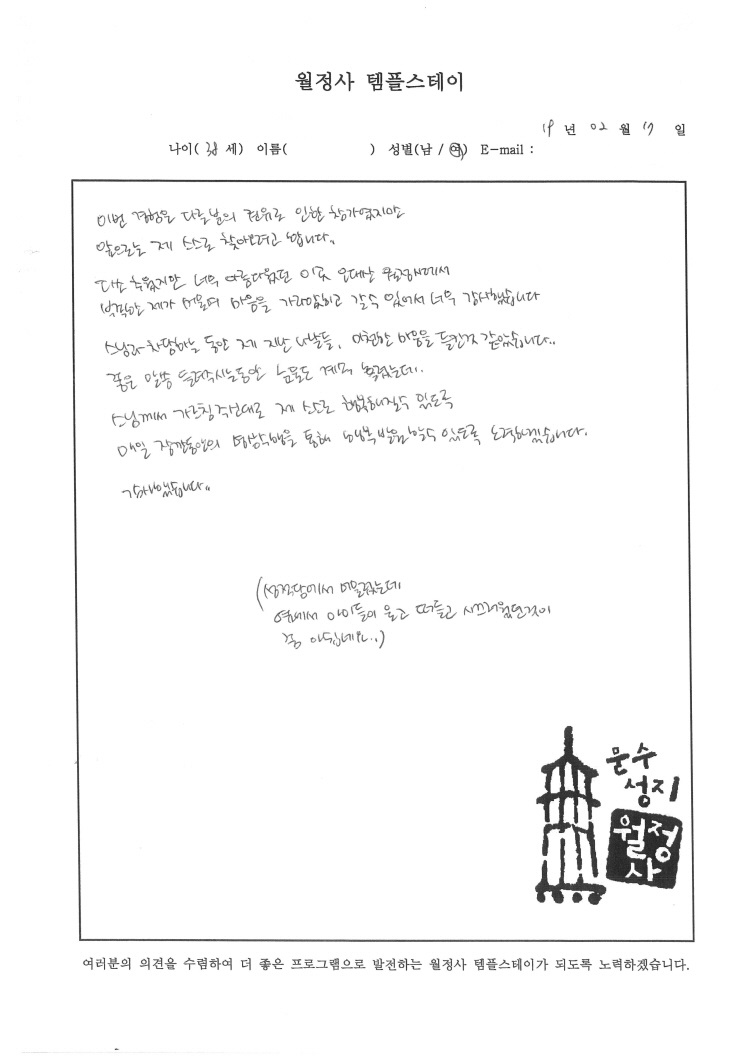 월정사 템플스테이
19 년 02 월 17 일
나이( 38 세) 이름( ) 성별(남 / 여) E-mail :
이번 경험은 다른분의 권유로 인한 참가였지만
앞으로는 제 스스로 찾아오려고 합니다.
다소 추웠지만 너무 아름다웠던 이곳 오대산 월정사에서
복잡한 제가 머물며 마음을 가라앉히고 갈수 있어서 너무 감사했습니다
스님과 차담하는 동안 제 지난 나날들, 마음을 들킨것 같았습니다..
좋은 말씀 들려주시는동안 눈물도 계속 흘렸는데..
스님께서 가르침주신대로 제 스스로 행복해질수 있도록
매일 잠깐동안의 명상수행을 통해 행복 할수 있도록 노력하겠습니다.
감사했습니다.
(성적당에서 머물렀는데
옆에서 아이들이 울고 떠들고 시끄러웠던것이
좀 아쉽네요..)
문수
성지
월정
사
여러분의 의견을 수렴하여 더 좋은 프로그램으로 발전하는 월정사 템플스테이가 되도록 노력하겠습니다.